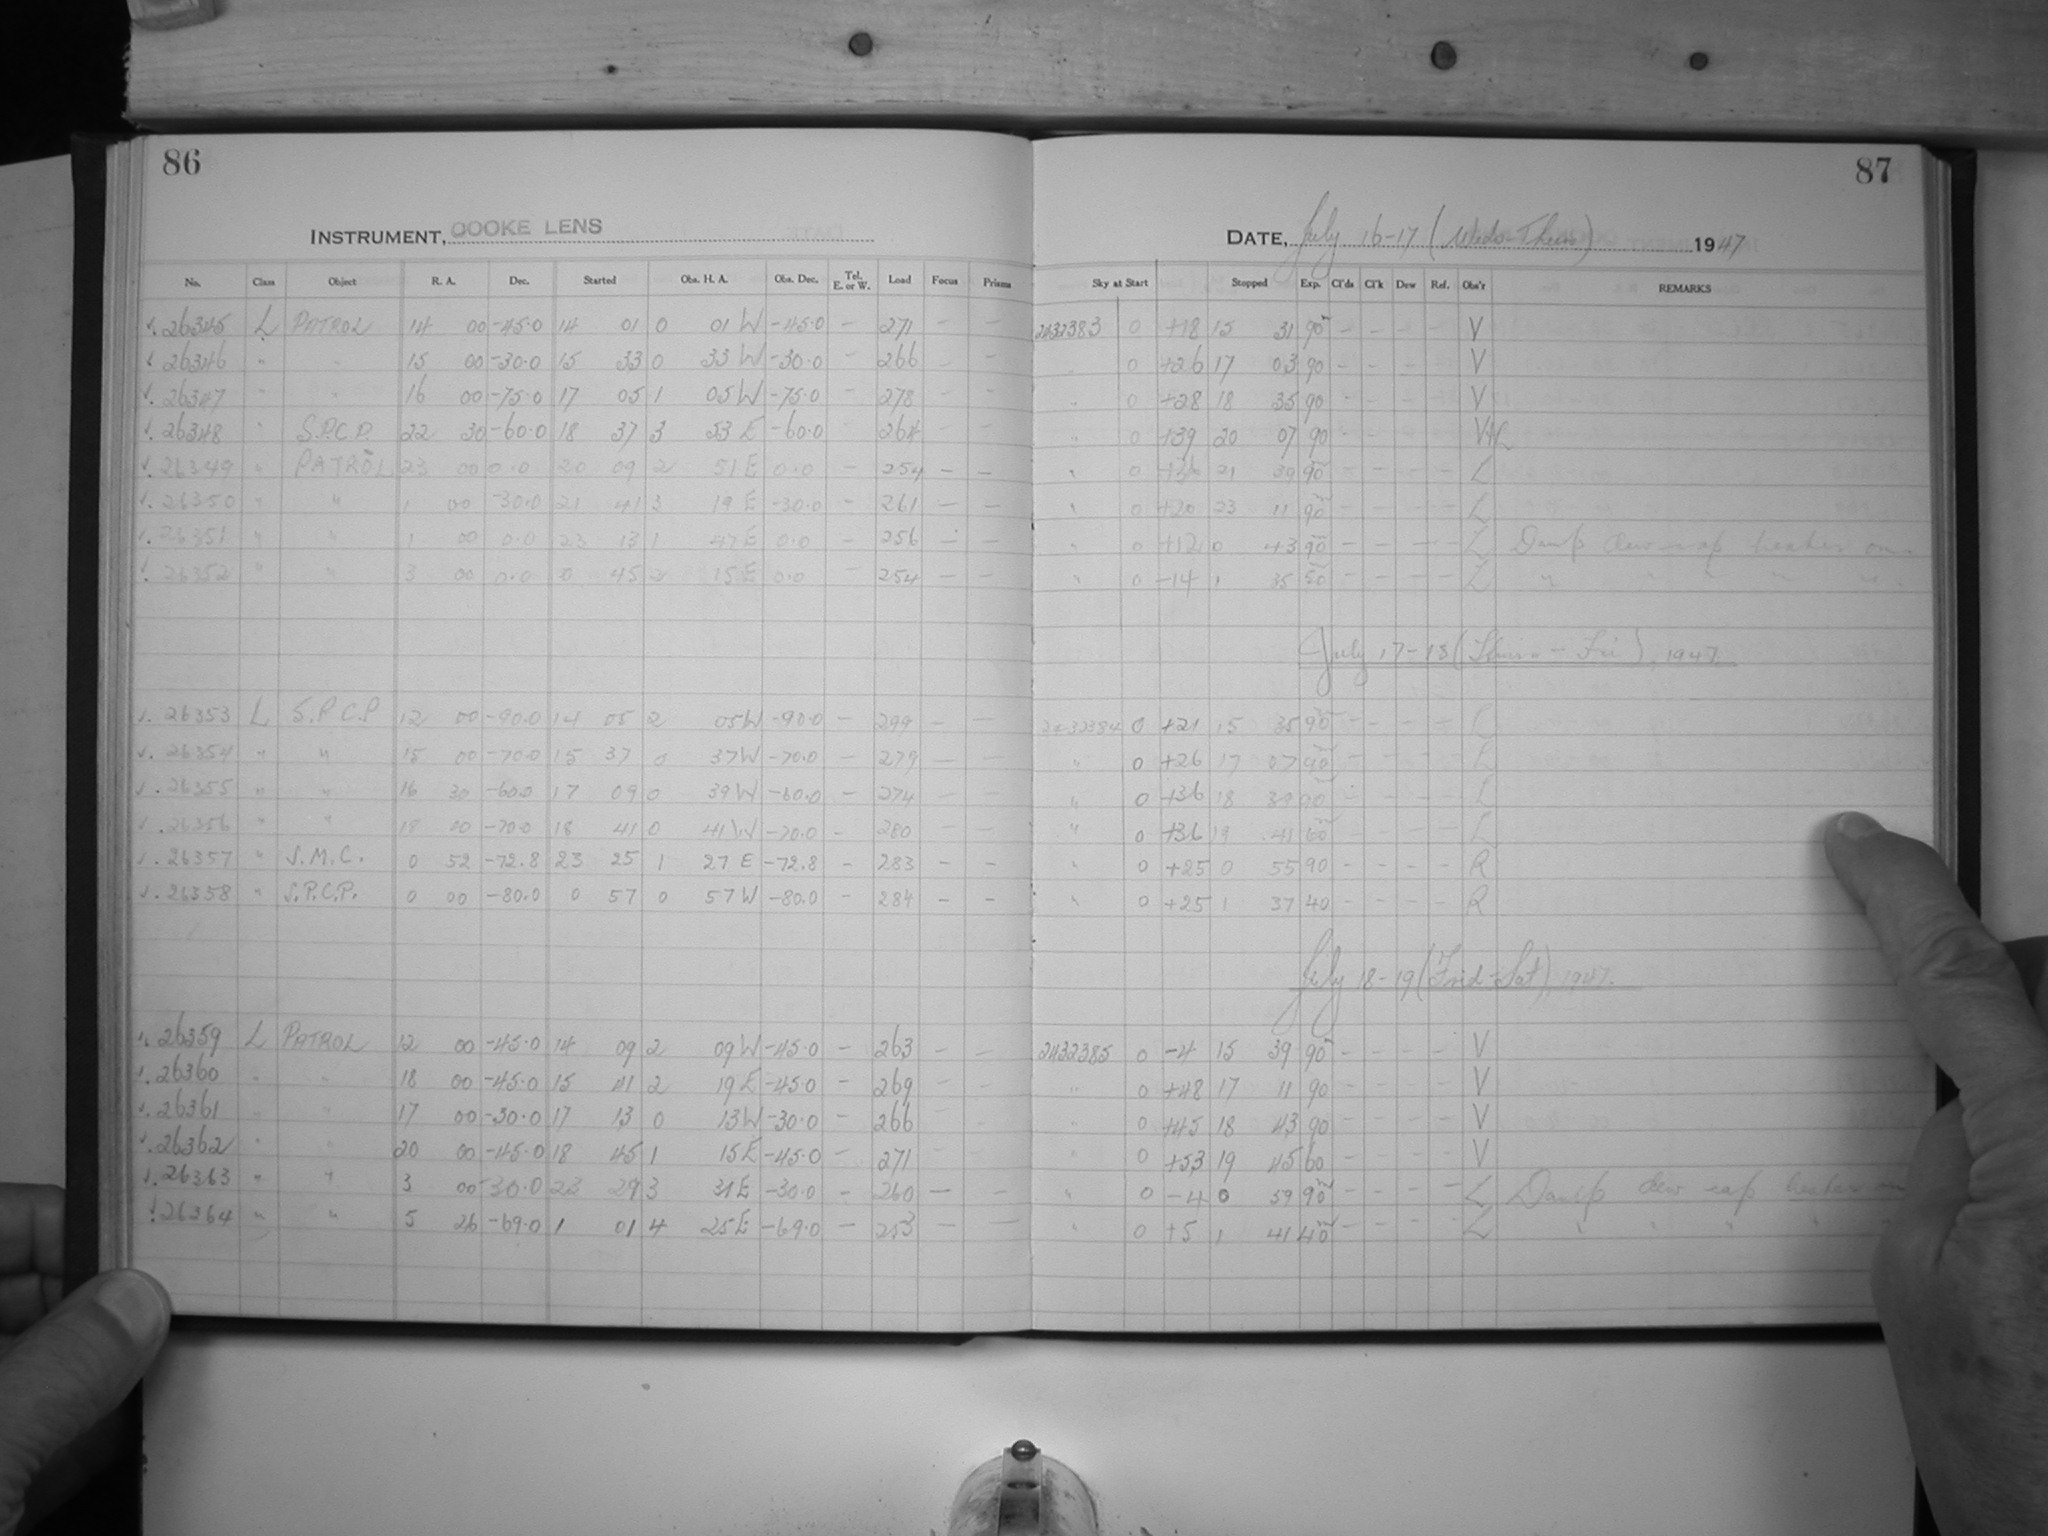 86
87
INSTRUMENT, COOKE LENS
DATE, July 16-17 (Weds-Thurs) 1947
No. Class Object R. A. Dec. Started Obs. H. A. Obs. Dec. Tel. E. or W. Load Focus Prisms Sky at Start Stopped Exp. Cl'ds Cl'k Dew Ref. Obs'r REMARKS
√. 26345 L PATROL 14 00 -45.0 14 01 0 01 W -45.0 - 271 - - 2432383 0 +18 15 31 90m - - - - V
√ 26346 " " 15 00 -30.0 15 33 0 33 W -30.0 - 266 - - " 0 +26 17 03 90 - - - - V
√. 26347 " " 16 00 -75.0 17 05 1 05 W -75.0 - 278 - - " 0 +28 18 35 90 - - - - V
√. 26348 " S.P.C.P. 22 30 -60.0 18 37 3 53 E -60.0 - 264 - - " 0 +39 20 07 90 - - - - V+L
√. 26349 " PATROL 23 00 0.0 20 09 2 51 E 0.0 - 254 - - " 0 21 39 90m - - - - L
√. 26350 " " 1 00 -30.0 21 41 3 19 E -30.0 - 261 - - " 0 +20 23 11 90m - - - - L
√. 26351 " " 1 00 0.0 23 13 1 47 E 0.0 - 256 - - " 0 +12 0 43 90m - - - - L Damp dew cap heater on.
√. 26352 " " 3 00 0.0 0 45 2 15 E 0.0 - 254 - - " 0 -14 1 35 50m - - - - L " " " " " "
July 17-18 (Thurs - Fri), 1947
√. 26353 L S.P.C.P 12 00 -90.0 14 05 2 05 W -90.0 - 299 - - 2432384 0 +21 15 35 90m - - - - L
√. 26354 " " 15 00 -70.0 15 37 0 37 W -70.0 - 279 - - " 0 +26 17 07 90m - - - - L
√. 26355 " " 16 30 -60.0 17 09 0 39 W -60.0 - 274 - - " 0 +36 18 39 90m - - - - L
√. 26356 " " 18 00 -70.0 18 41 0 41 W -70.0 - 280 - - " 0 +36 19 41 60m - - - - L
√. 26357 " S.M.C. 0 52 -72.8 23 25 1 27 E -72.8 - 283 - - " 0 +25 0 55 90 - - - - R
√. 26358 " S.P.C.P. 0 00 -80.0 0 57 0 57 W -80.0 - 284 - - " 0 +25 1 37 40 - - - - R
July 18-19 (Frid-Sat), 1947.
√. 26359 L PATROL 12 00 -45.0 14 09 2 09 W -45.0 - 263 - - 2432385 0 -4 15 39 90m - - - - V
√. 26360 " " 18 00 -45.0 15 41 2 19 E -45.0 - 269 - - " 0 +48 17 11 90 - - - - V
√. 26361 " " 17 00 -30.0 17 13 0 13 W -30.0 - 266 - - " 0 +45 18 43 90 - - - - V
√. 26362 " " 20 00 -45.0 18 45 1 15 E -45.0 - 271 - - " 0 +53 19 45 60 - - - - V
√. 26363 " " 3 00 -30.0 23 29 3 31 E -30.0 - 260 - - " 0 -4 0 59 90m - - - - L Damp dew cap heater on
√. 26364 " " 5 26 -69.0 1 01 4 25 E -69.0 - 253 - - " 0 +5 1 41 40m - - - - L " " " " "